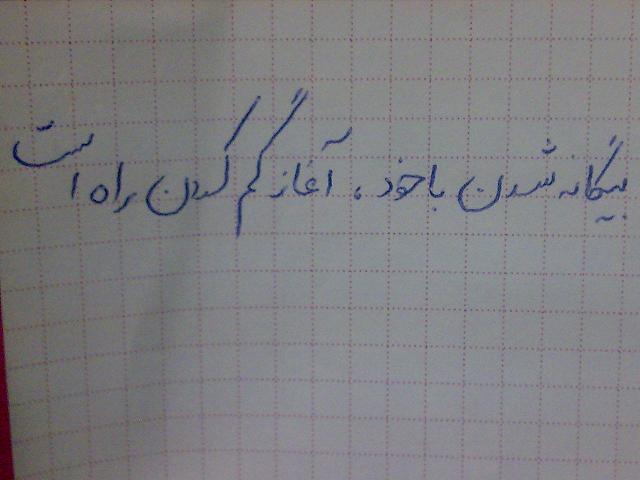 بیگانه شدن با خود، آغاز گم کردن راه است